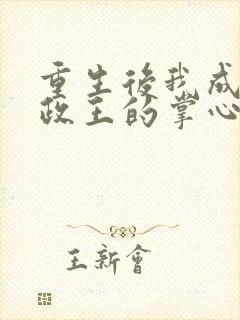 重生後我成
政王的掌心
王新會